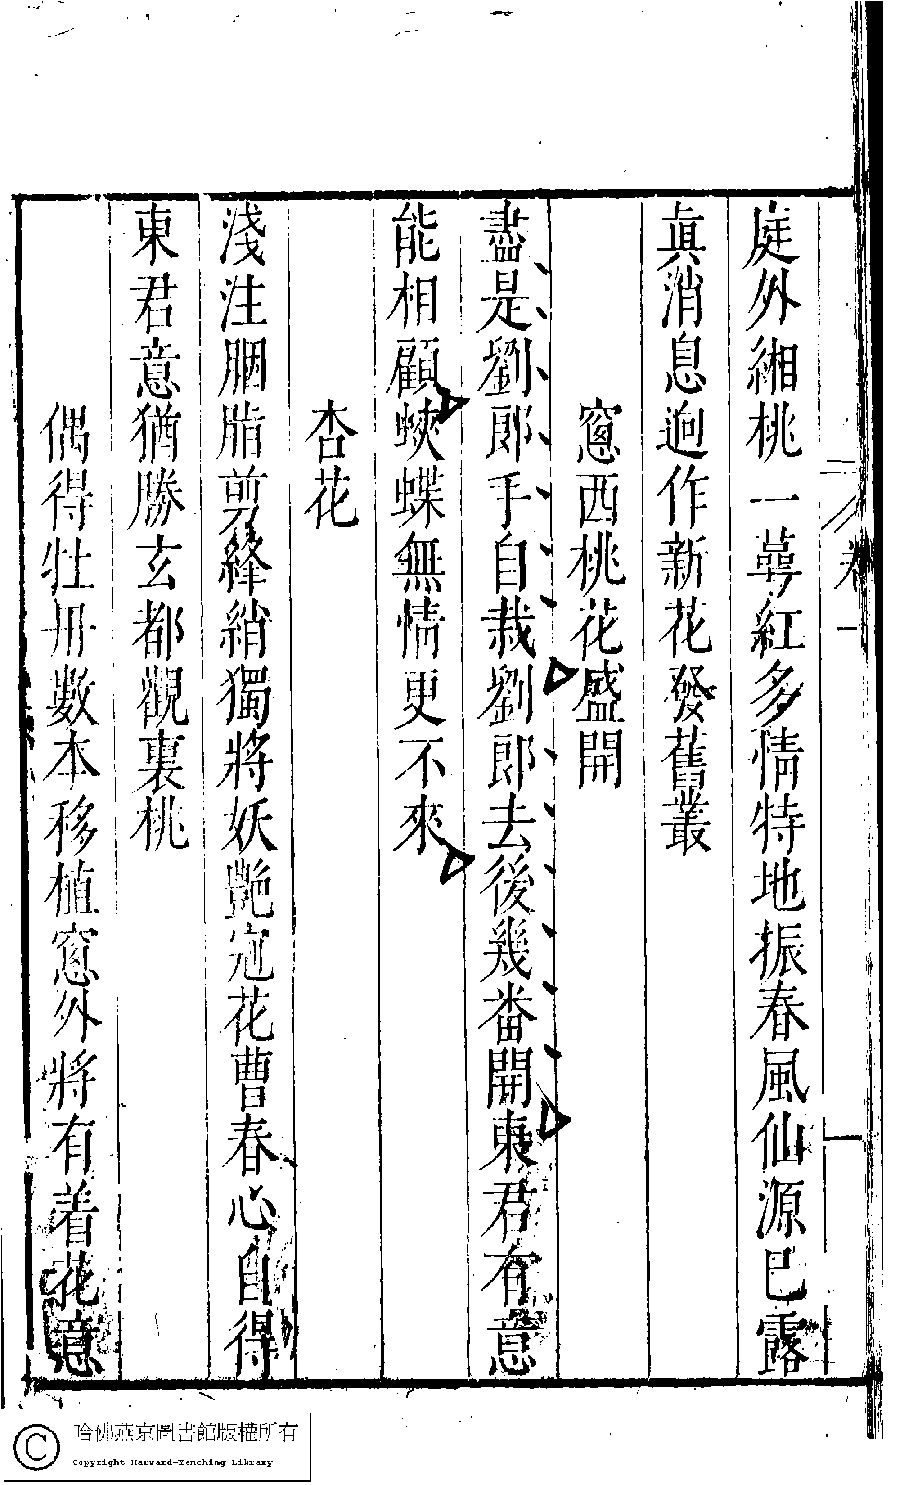 卷一
庭外緗桃一萼紅多情特地振春風仙源已露
眞消息逈作新花發舊叢
窓西桃花盛開
盡是劉郎手自栽劉郎去後幾畨開東君有意
能相顧蛺蝶無情更不來
杏花
淺注胭脂剪絳綃獨將妖艶冠花曹春心自得
東君意猶勝玄都觀裏桃
偶得牡丹數本移植窓外將有着花意
哈佛燕京圖書館版權所有
Copyright Harvard-Yenching Library